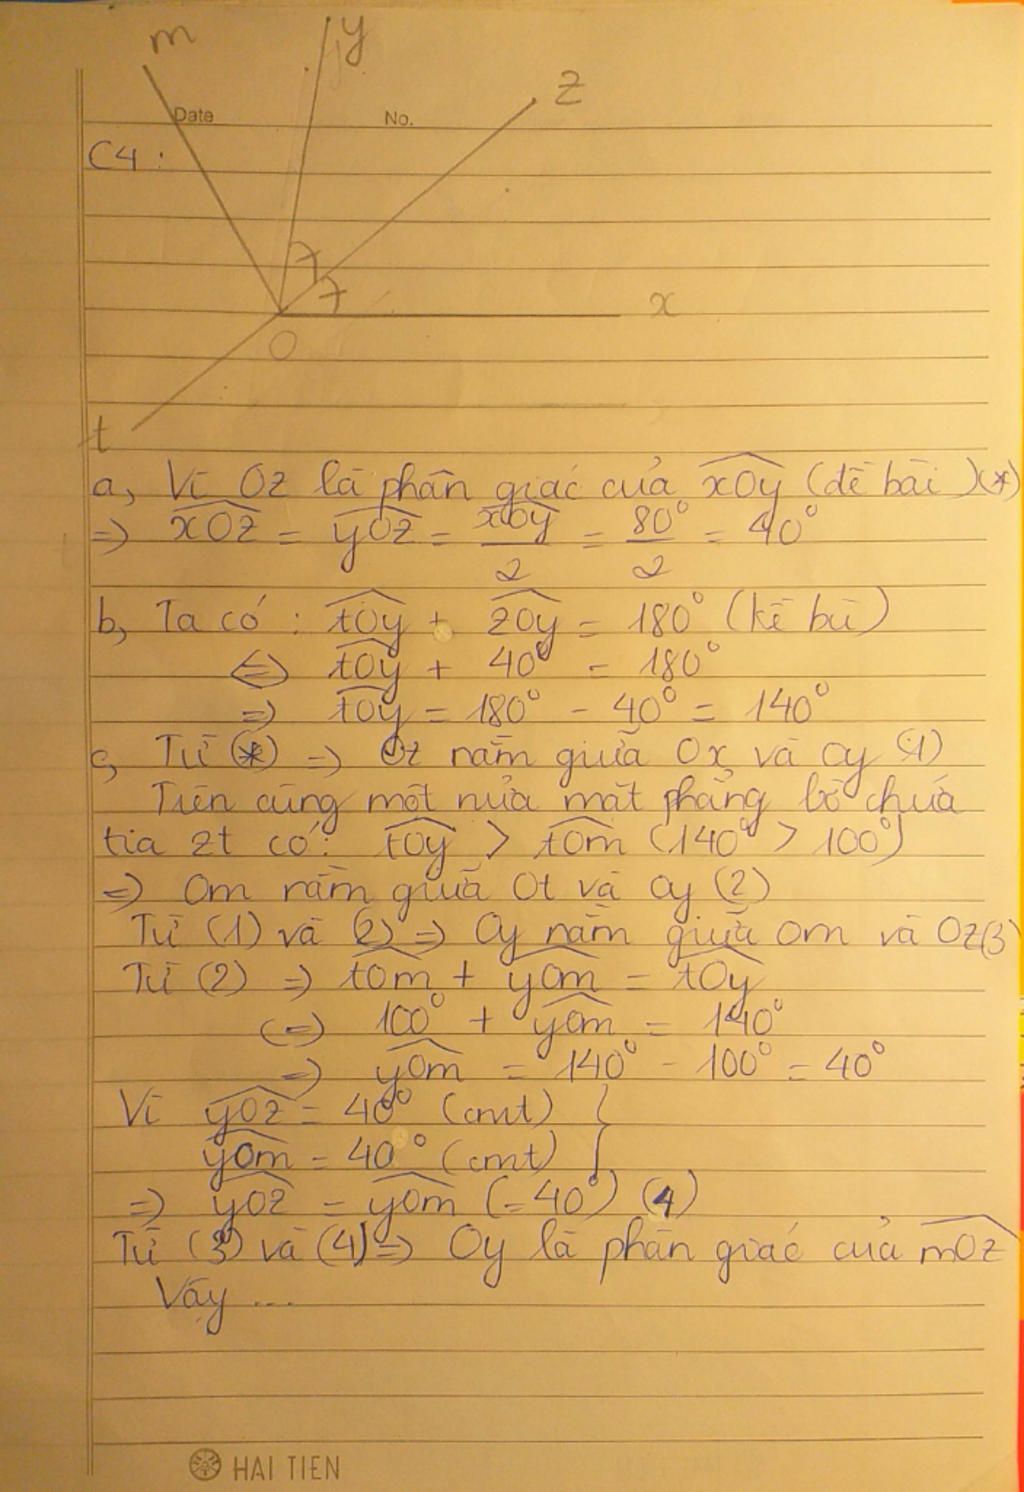 m
y
z
Date
No.
C4 :
x
O
t
a, Vì Oz là phân giác của xOy (đề bài)(*)
=> xOz = yOz = xOy/2 = 80°/2 = 40°
b, Ta có : tOy + zOy = 180° (kề bù)
<=> tOy + 40° = 180°
=> tOy = 180° - 40° = 140°
c, Từ (*) => Oz nằm giữa Ox và Oy (1)
Trên cùng một nửa mặt phẳng bờ chứa
tia zt có: tOy > tOm (140° > 100°)
=> Om nằm giữa Ot và Oy (2)
Từ (1) và (2) => Oy nằm giữa Om và Oz(3)
Từ (2) => tOm + yOm = tOy
(=) 100° + yOm = 140°
=> yOm = 140° - 100° = 40°
Vì yOz = 40° (cmt) }
yOm = 40° (cmt)
=> yOz = yOm (=40°) (4)
Từ (3) và (4) => Oy là phân giác của mOz
Vậy ...
HAI TIEN